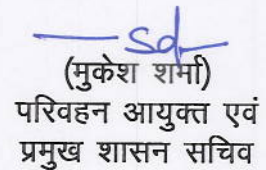 sd
(मुकेश शर्मा)
परिवहन आयुक्त एवं
प्रमुख शासन सचिव